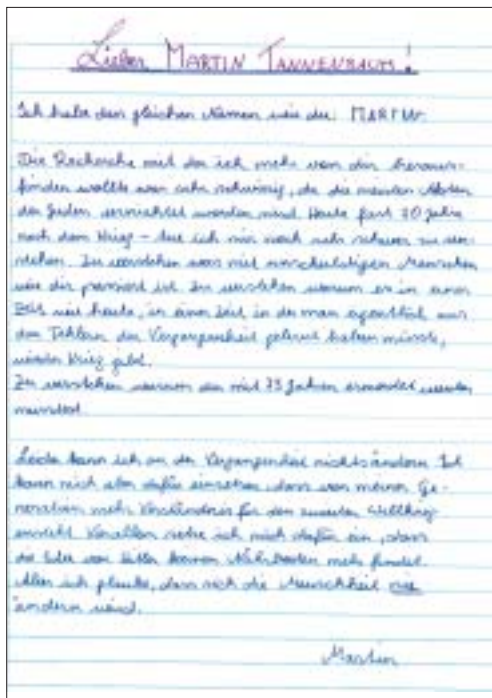 Lieber MARTIN TANNENBAUM!
Ich habe den gleichen Namen wie du: MARTIN.
Die Recherche mit der ich mehr von dir heraus-
finden wollte war sehr schwierig, da die meisten Akten
der Juden vernichtet worden sind. Heute fast 70 Jahre
nach dem Krieg – tue ich mir noch sehr schwer zu ver-
stehen. Zu verstehen was mit unschuldigen Menschen
wie dir passiert ist. Zu verstehen warum es in einer
Zeit wie heute, in einer Zeit in der man eigentlich aus
den Fehlern der Vergangenheit gelernt haben müsste,
wieder Krieg gibt.
Zu verstehen warum du mit 73 Jahren ermordet werden
musstest.
Leider kann ich an der Vergangenheit nichts ändern. Ich
kann mich aber dafür einsetzen, dass man meiner Ge-
neration mehr Verständnis für den zweiten Weltkrieg
erreicht. Vor allem setze ich mich dafür ein, dass
die Idee von Hitler keinen Nährboden mehr findet.
Aber ich glaube, dass sich die Menschheit nie
ändern wird.
Martin